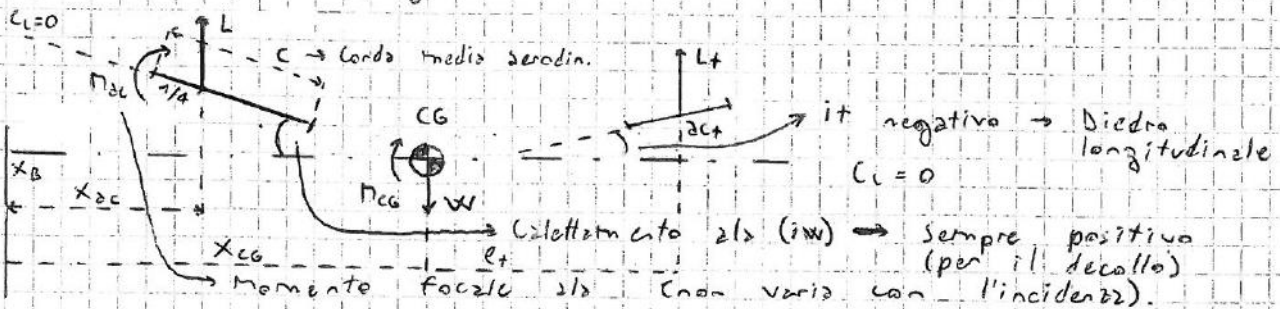 CL=0
L
C → Corda media aerodin.
Mac
1/4
Lt
CG
act
it negativo → Diedro
longitudinale
CL = 0
XB
Xac
MCG
W
Calettamento ala (iw) → Sempre positivo
(per il decollo)
XCG
lt
Momento focale ala (non varia con l'incidenza).